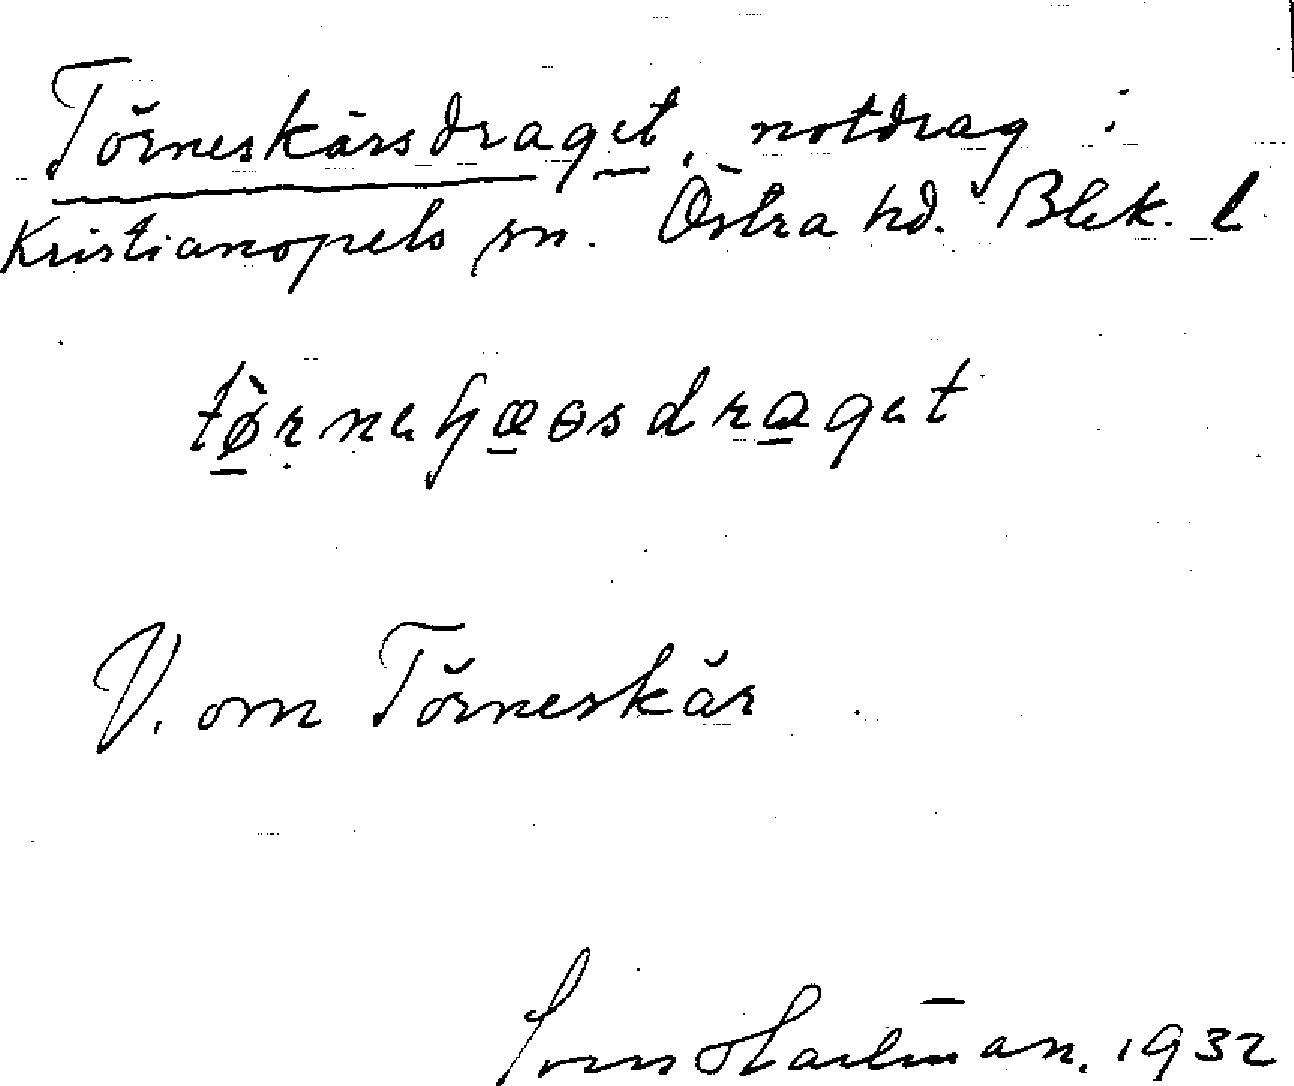 Törneskärsdraget, notdrag i
Kristianopels sn. Östra hd. Blek. l
V. om Törneskär
Sven Hartman. 1932